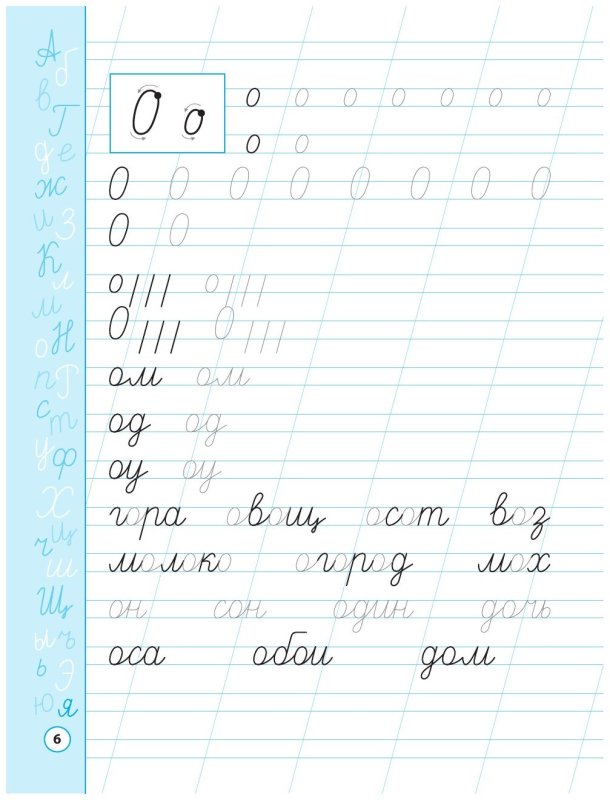 А
б
в
Г
д е
ж
и З
К
л
м
о Н
п Г
с
т
у ф
Х
ч Ц
ш
Щ
ы ъ
ь Э
Ю я
6
О о
о о о о о о о
о о
О О О О О О О О
О О
о о
О О
ом ом
од од
оу оу
гора овощ осот воз
молоко огород мох
он сон один дочь
оса обои дом